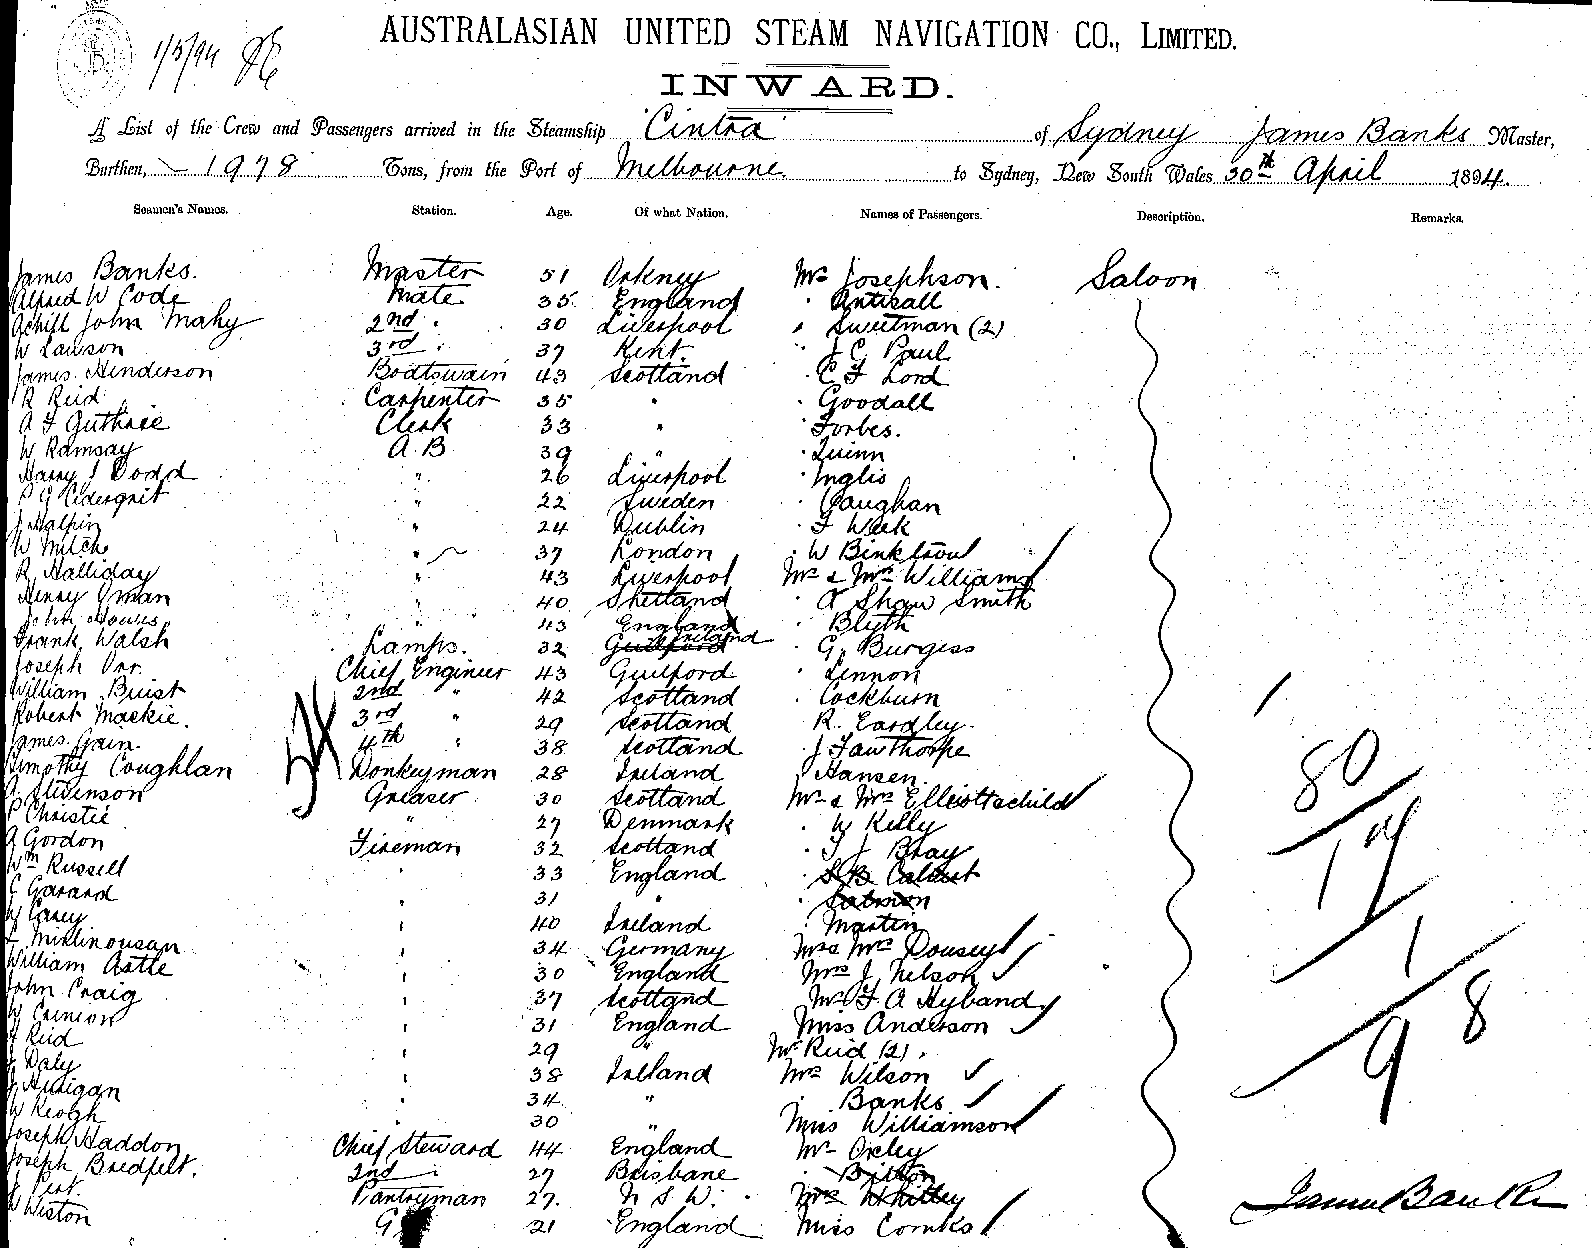 1/5/94
AUSTRALASIAN UNITED STEAM NAVIGATION CO., LIMITED.
INWARD.
A List of the Crew and Passengers arrived in the Steamship Cintra of Sydney James Banks Master,
Burthen, 1978 Tons, from the Port of Melbourne to Sydney, New South Wales 30th April 1894.
Seamen's Names. Station. Age. Of what Nation. Names of Passengers. Description. Remarks.
James Banks. Master 51 Orkney Mr Josephson. Saloon
Alfred W Code Mate 35 England " Antisall
Achill John Mahy 2nd " 30 Liverpool " Sweetman (2)
W Lawson 3rd " 37 Kent. " J G Paul
James Henderson Boatswain 43 Scotland " C F Lord
R Reid Carpenter 35 " " Goodall
A F Guthrie Clerk 33 " " Forbes.
W Ramsay A.B 39 " " Quinn
Harry J Dodd " 26 Liverpool " Inglis
" 22 Sweden " Vaughan
J Halpin " 24 Dublin " F Week
W Mitch " 37 London " W
R Halliday " 43 Liverpool Mr & Mrs Williams
Henry Oman " 40 Shetland " A Shaw Smith
John Howes " 43 England " Blyth
Frank Walsh Lamps. 32 Guilford Ireland " G. Burgess
Joseph Orr. Chief Engineer 43 Guilford " Lennon
William Buist 2nd " 42 Scotland " Cockburn
Robert Mackie. 3rd " 29 Scotland " R. Eardley.
James Gain. 4th " 38 Scotland " J Fawthorpe
Timothy Coughlan Donkeyman 28 Ireland " Hansen.
A Stevenson Greaser 30 Scotland Mr & Mrs
P Christie " 27 Denmark " W Kelly
A Gordon Fireman 32 Scotland " T J Bray
Wm Russell " 33 England " S B Calvert
G Garard " 31 " " Salmon
W Carey " 40 Ireland " Martin
" 34 Germany Mrs Dousey
William Astle " 30 England Mrs J. Nelson
John Craig " 37 Scotland Mr F. A Hyband
W " 31 England Miss Anderson
Reid " 29 " Mr Reid (2).
Daly " 38 Ireland Mrs Wilson
" 34 " " Banks
W Keogh " 30 " Miss Williamson
Joseph Haddon Chief Steward 44 England Mr Oxley
Joseph Bredfelt. 2nd " 27 Brisbane " Britton
Pantryman 27. N S W. Mrs Whitley
W Weston 21 England Miss Comks
80
19
1
98
James Banks